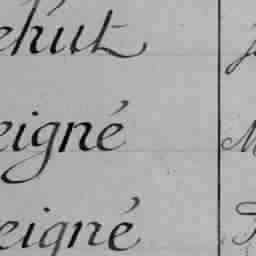 ehut
eigné
M
eigné